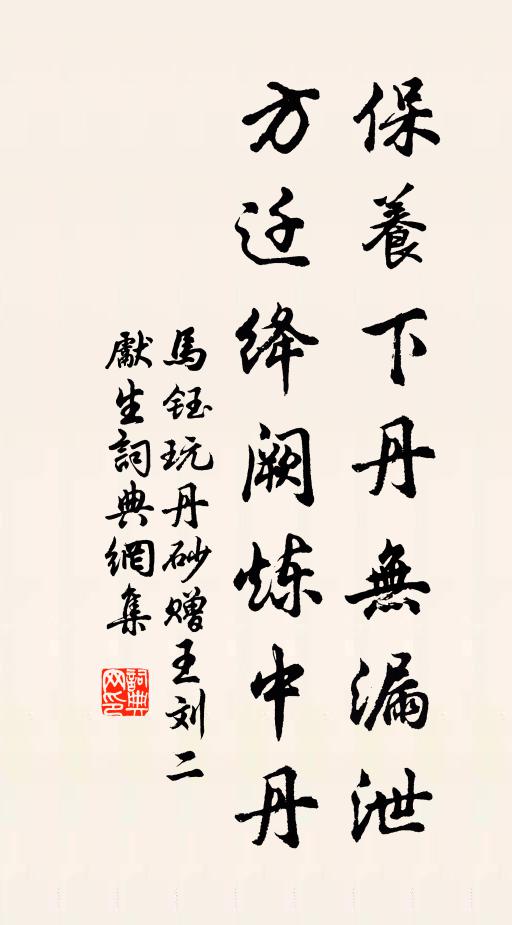 保養下丹無漏泄
方迁绛阙炼中丹
馬鈺玩丹砂赠王刘二
獻生詞典網集
詞典
网印